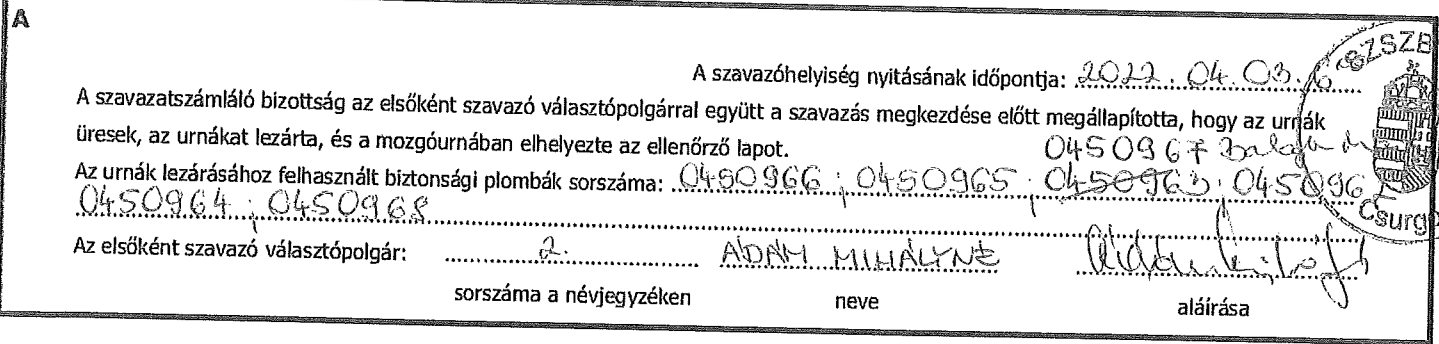 A
SZSZB
A szavazóhelyiség nyitásának időpontja: 2022. 04. 03. 6
A szavazatszámláló bizottság az elsőként szavazó választópolgárral együtt a szavazás megkezdése előtt megállapította, hogy az urnák
üresek, az urnákat lezárta, és a mozgóurnában elhelyezte az ellenőrző lapot.
0450967
Az urnák lezárásához felhasznált biztonsági plombák sorszáma: 0450966 ; 0450965 ; 0450963 ; 045096
0450964 ; 0450968
Csurg
Az elsőként szavazó választópolgár: 2. ÁDÁM MIHÁLYNÉ
sorszáma a névjegyzéken neve aláírása